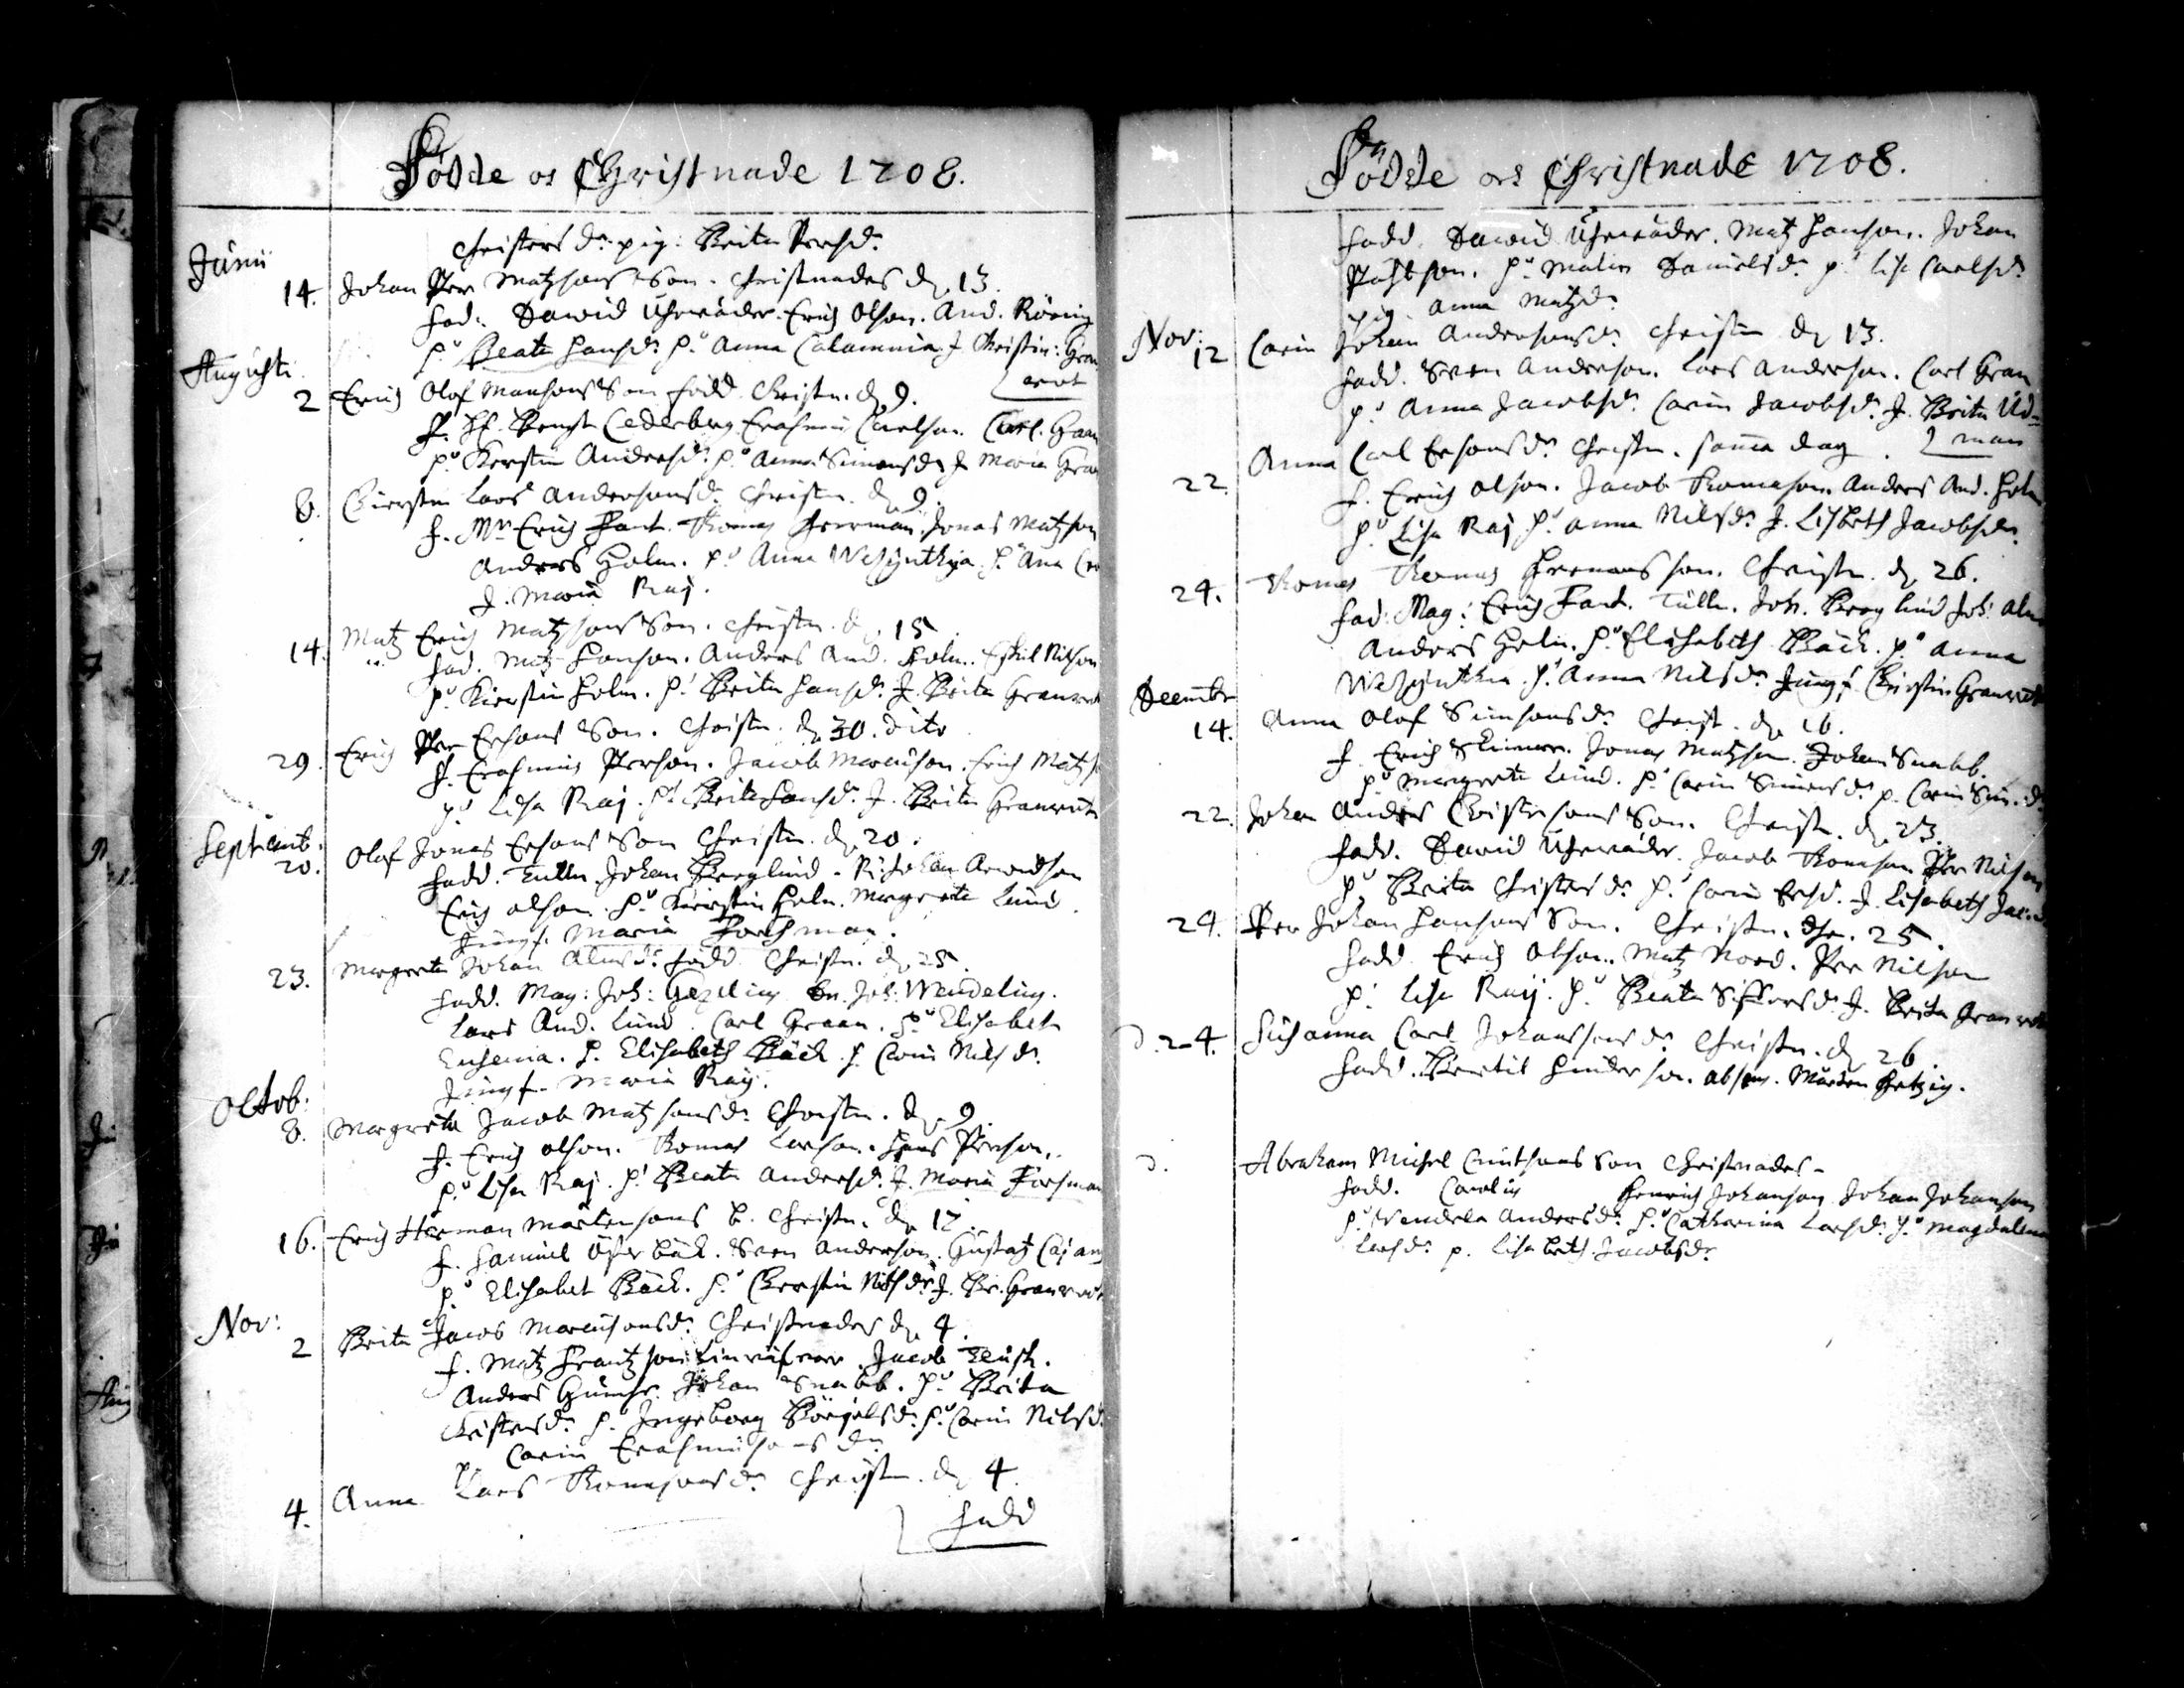 Födde och Christnade 1708.
Christers dr. pig: Brita Persdr.
Junii
14. Johan Per Matzsons Son. Christnades d. 13.
Fad. Dawid Uhrwäder. Erich Olson. And. Röring
h.u Beata Hansdr. h.u Anna Calamnia J. Christin: Gran
wet
Augusti
2 Erich Olof Mansons Son född Christn. d. 9.
f. H. Bengt Cederberg Erasmus Carlson. Carl. Graan
h.u Kerstin Andersdr. h.u Anna Simonsdr. J. Maria Gra
8. Kierstin Lars Andersonsdr. Christn. d. 9.
f. Mr Erich Fant. Thomas Herman. Jonas Matzson
Anders Holm. h.u Anna Wesynthia. h. Ana
J. Maria Raj.
14. Matz Erich Matzsons Son. Christn. d. 15
Fad. Matz Hanson. Anders And. Holm. Eskil Nilson
h.u Kierstin Holm. h. Brita Hansdr. J. Brita Granwet
29. Erich Per Ersons Son. Christn. d. 30. dito
f. Erasmus Person. Jacob Marcuson. Erich Matzs
h.u Lisa Raj. h. Brita Hansdr. J. Brita Granwet
Septemb.
20. Olof Jonas Ersons Son Christn. d. 20.
Fadd. Tulln. Johan Berglind. R: Johan Arwidson
Erich Olson. h.u Kierstin Holm. Margreta Lund.
Jungf. Maria Forsman.
23. Margreta Johan Almsdr. född Christn. d. 25.
Fadd. Mag: Joh: Gezelius Joh: Wendelius.
Lars And. Lund. Carl Graan. h.u Elisabet
Enhenia. h. Elisabeth Bäck h. Carin Nilsdr.
Jungf. Maria Raij.
Octob:
8. Margreta Jacob Matzsonsdr. Christn. d. 9.
f. Erich Olson. Thomas Larson. Hans Person.
h.u Lisa Raj. h. Beata Andersdr. J. Maria Forsman
16. Erich Herman Mårtensons b. Christn. d. 17
f. Samuel Österbäck. Sven Anderson. Gustaf Cajanus
h.u Elisabet Bäck. h.u Kerstin Nilsdr. J. Br. Granwet
Nov:
2 Brita Jacob Marcusonsdr. Christnades d. 4.
f. Matz Frantzson Jacob Teusk.
Anders Gumse. Johan Snabb. h.u Brita
Christersdr. h. Ingeborg Börjelsdr. h.u Carin Nilsd.
Carin Erasmusons dr.
4. Anna Lars Thomsonsdr. Christn. d. 4.
Fadd
Födde och Christnade 1708.
Fadd. Dawid Uhrwäder. Matz Hanson. Johan
h.u Malin Danielsdr. p. Lisa Carlsdr.
pig Anna Matzdr.
Nov:
12 Carin Johan Andersonsdr. Christn d. 13.
Fadd. Sven Anderson. Lars Anderson. Carl Gran
h.u Anna Jacobsdr. Carin Jacobsdr. J. Brita Ud-
man
22. Anna Carl Ersonsdr. Christn. sama dag.
f. Erich Olson. Jacob Thomeson. Anders And. Holm
h.u Lisa Raj h.u Anna Nilsdr. J. Lisbeth Jacobsdr.
24. Thomas Thomas Hermans son. Christn. d. 26.
Fad: Mag: Erich Fant. Tulln. Joh. Berglind Joh: Alm
Anders Holm. h.u Elisabeth Bäck. h.u Anna
Wesynthia. h. Anna Nilsdr. Jungf. Kirstin Granwet
Decembr
14. Anna Olof Simsonsdr. Christ. d. 16.
f. Erich Skinnar. Jonas Matzson. Johan Snabb.
h.u Margreta Lund. h. Carin Simonsdr. p. Carin Sim. d
22. Johan Anders Christersons Son. Christn. d. 23.
Fadd. Dawid Uhrwäder. Jacob Thomson Per Nilson
h.u Brita Christersdr. h. Carin Ersd. J. Lisabeth Jacob
24. Per Johan Hansons Son. Christn. den 25.
Fadd. Erich Olson. Matz Nord. Per Nilson
h. Lisa Raij. h.u Beata Siffersdr. J. Brita Granwet
D. 24. Susanna Carl Johansons dr. Christn. d. 26.
Fadd. Bertil Hinderson. absens. Mårten Hetzig.
D. Abraham Michel Cnuthsons Son Christnades -
Fadd. Carolus Henrich Johanson Johan Johanson
h.u Wendela Andersdr. h.u Catharina Larsdr. h.u Magdalena
Larsdr. p. Lisa beth Jacobsdr.